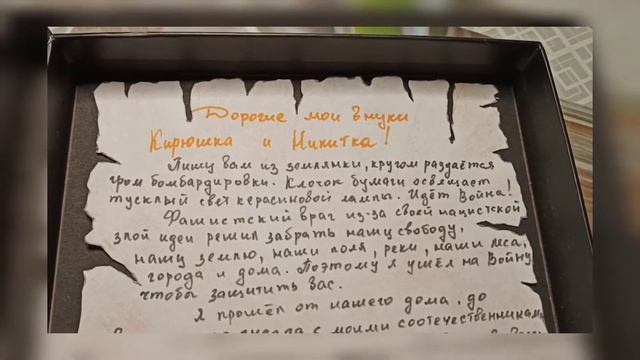 Дорогие мои внуки
Кирюшка и Никитка!
Пишу вам из землянки, кругом раздаётся
гром бомбардировки. Клочок бумаги освещает
тусклый свет керасиновой лампы. Идёт Война!
Фашистский враг из-за своей нацистской
злой идеи решил забрать нашу свободу,
нашу землю, наши поля, реки, наши леса,
города и дома. Поэтому я ушёл на Войну
чтобы защитить вас.
Я прошёл от нашего дома, до
с моими соотечественниками